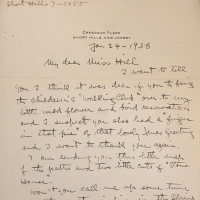 Short Hills 7-1055
CHEROKEE PLACE
SHORT HILLS, NEW JERSEY
Jan 24 - 1938
My dear Miss Hill
I want to tell
you I think it was dear of you to bring
the children's "Walking Club" over to my
little wild flower and bird reservation
and I suspect you also had a finger
in that "pie" of that lovely Xmas greeting
and I want to thank you again.
I am sending you this little map
of the paths and two little cuts of "Tone
House"
Won't you call me up some time